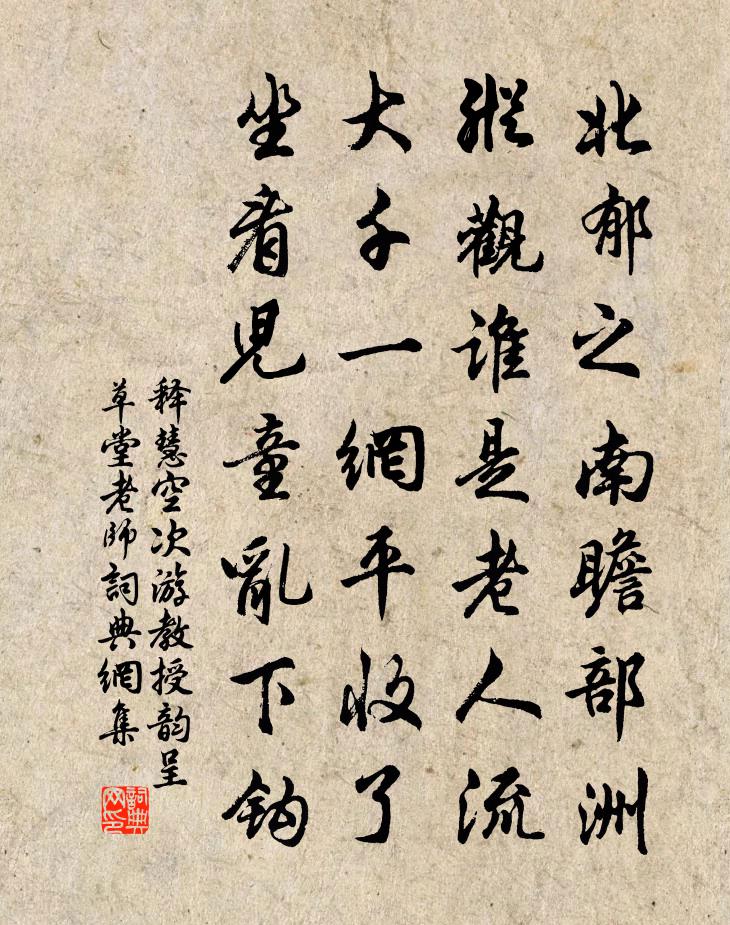 北郁之南瞻部洲
縱觀谁是老人流
大千一網平收了
坐看児童亂下钩
释慧空次游教授韵呈
草堂老师詞典網集
詞典网印